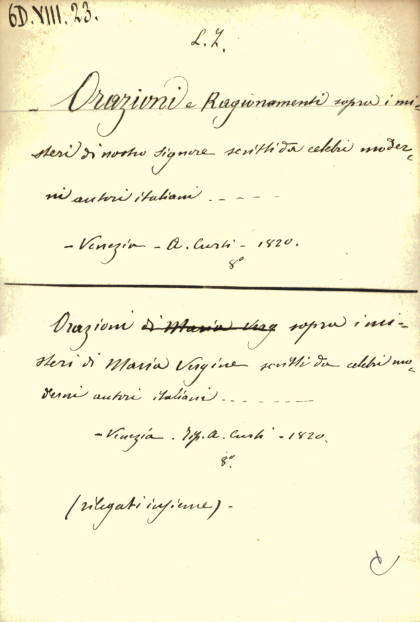 6D.VIII.23.
L.Z.
Orazioni e Ragionamenti sopra i mi-
steri di nostro signore scritti da celebri moder-
ni autori italiani - - - - -
- Venezia - A. Curti - 1820.
8°
Orazioni di Maria Verg sopra i mi-
steri di Maria Vergine scritti da celebri mo-
derni autori italiani - - - - - - -
- Venezia . Tip. A. Curti - 1820.
8°.
(rilegati insieme) -